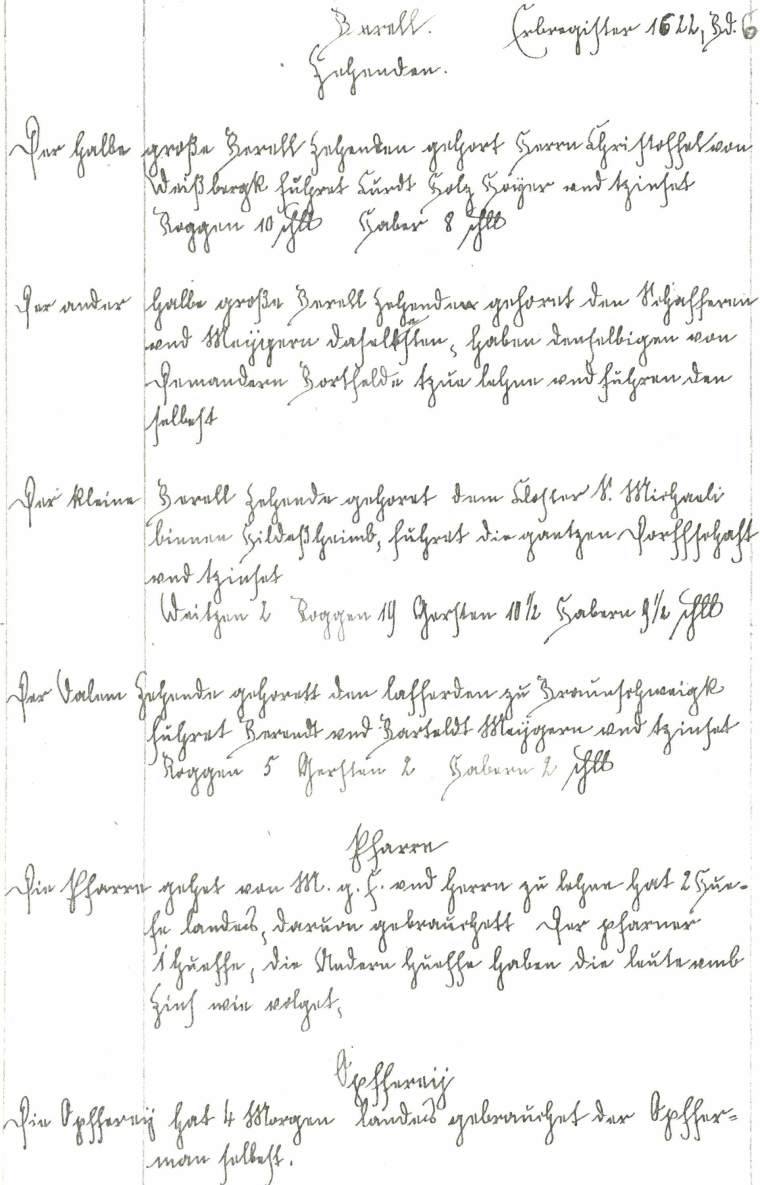 Berell. Erbregister 1622, Bd. 6
Zehenden.
Der halbe große Berell Zehenden gehort Herrn Christoffel von
Weißbergk fuhret Curdt Holz Hoÿer und tzinset
Roggen 10 schll Haber 8 schll
Der ander halbe große Berell Zehenden gehoret den Schafferen
und Meÿgern daselbsten, haben denselbigen von
Demandern Bortfelde tzue lehne und fuhren den
selbest
Der kleine Berell Zehende gehoret dem Closter S. Michaeli
binnen Hildeßheimb, fuhret die gantzen Dorffschaft
und tzinset
Weitzen 2 Roggen 19 Gersten 10 1/2 Habern 9 1/2 schll
Der Dalem Zehende gehorett den lafferden zu Braunschweigk
fuhret Berendt und Barteldt Meÿgern und tzinset
Roggen 5 Gersten 2 Habern 2 schll
Pfarre
Die Pfarre gehet von M. g. F. und Herrn zu lehne hat 2 Hue-
fe landes, daruon gebrauchett der pharner
1 hueffe, die Andern hueffe haben die leute umb
Zins wie volget,
Opffereÿ
Die Opffereÿ hat 4 Morgen landes gebrauchet der Opffer=
man selbest.